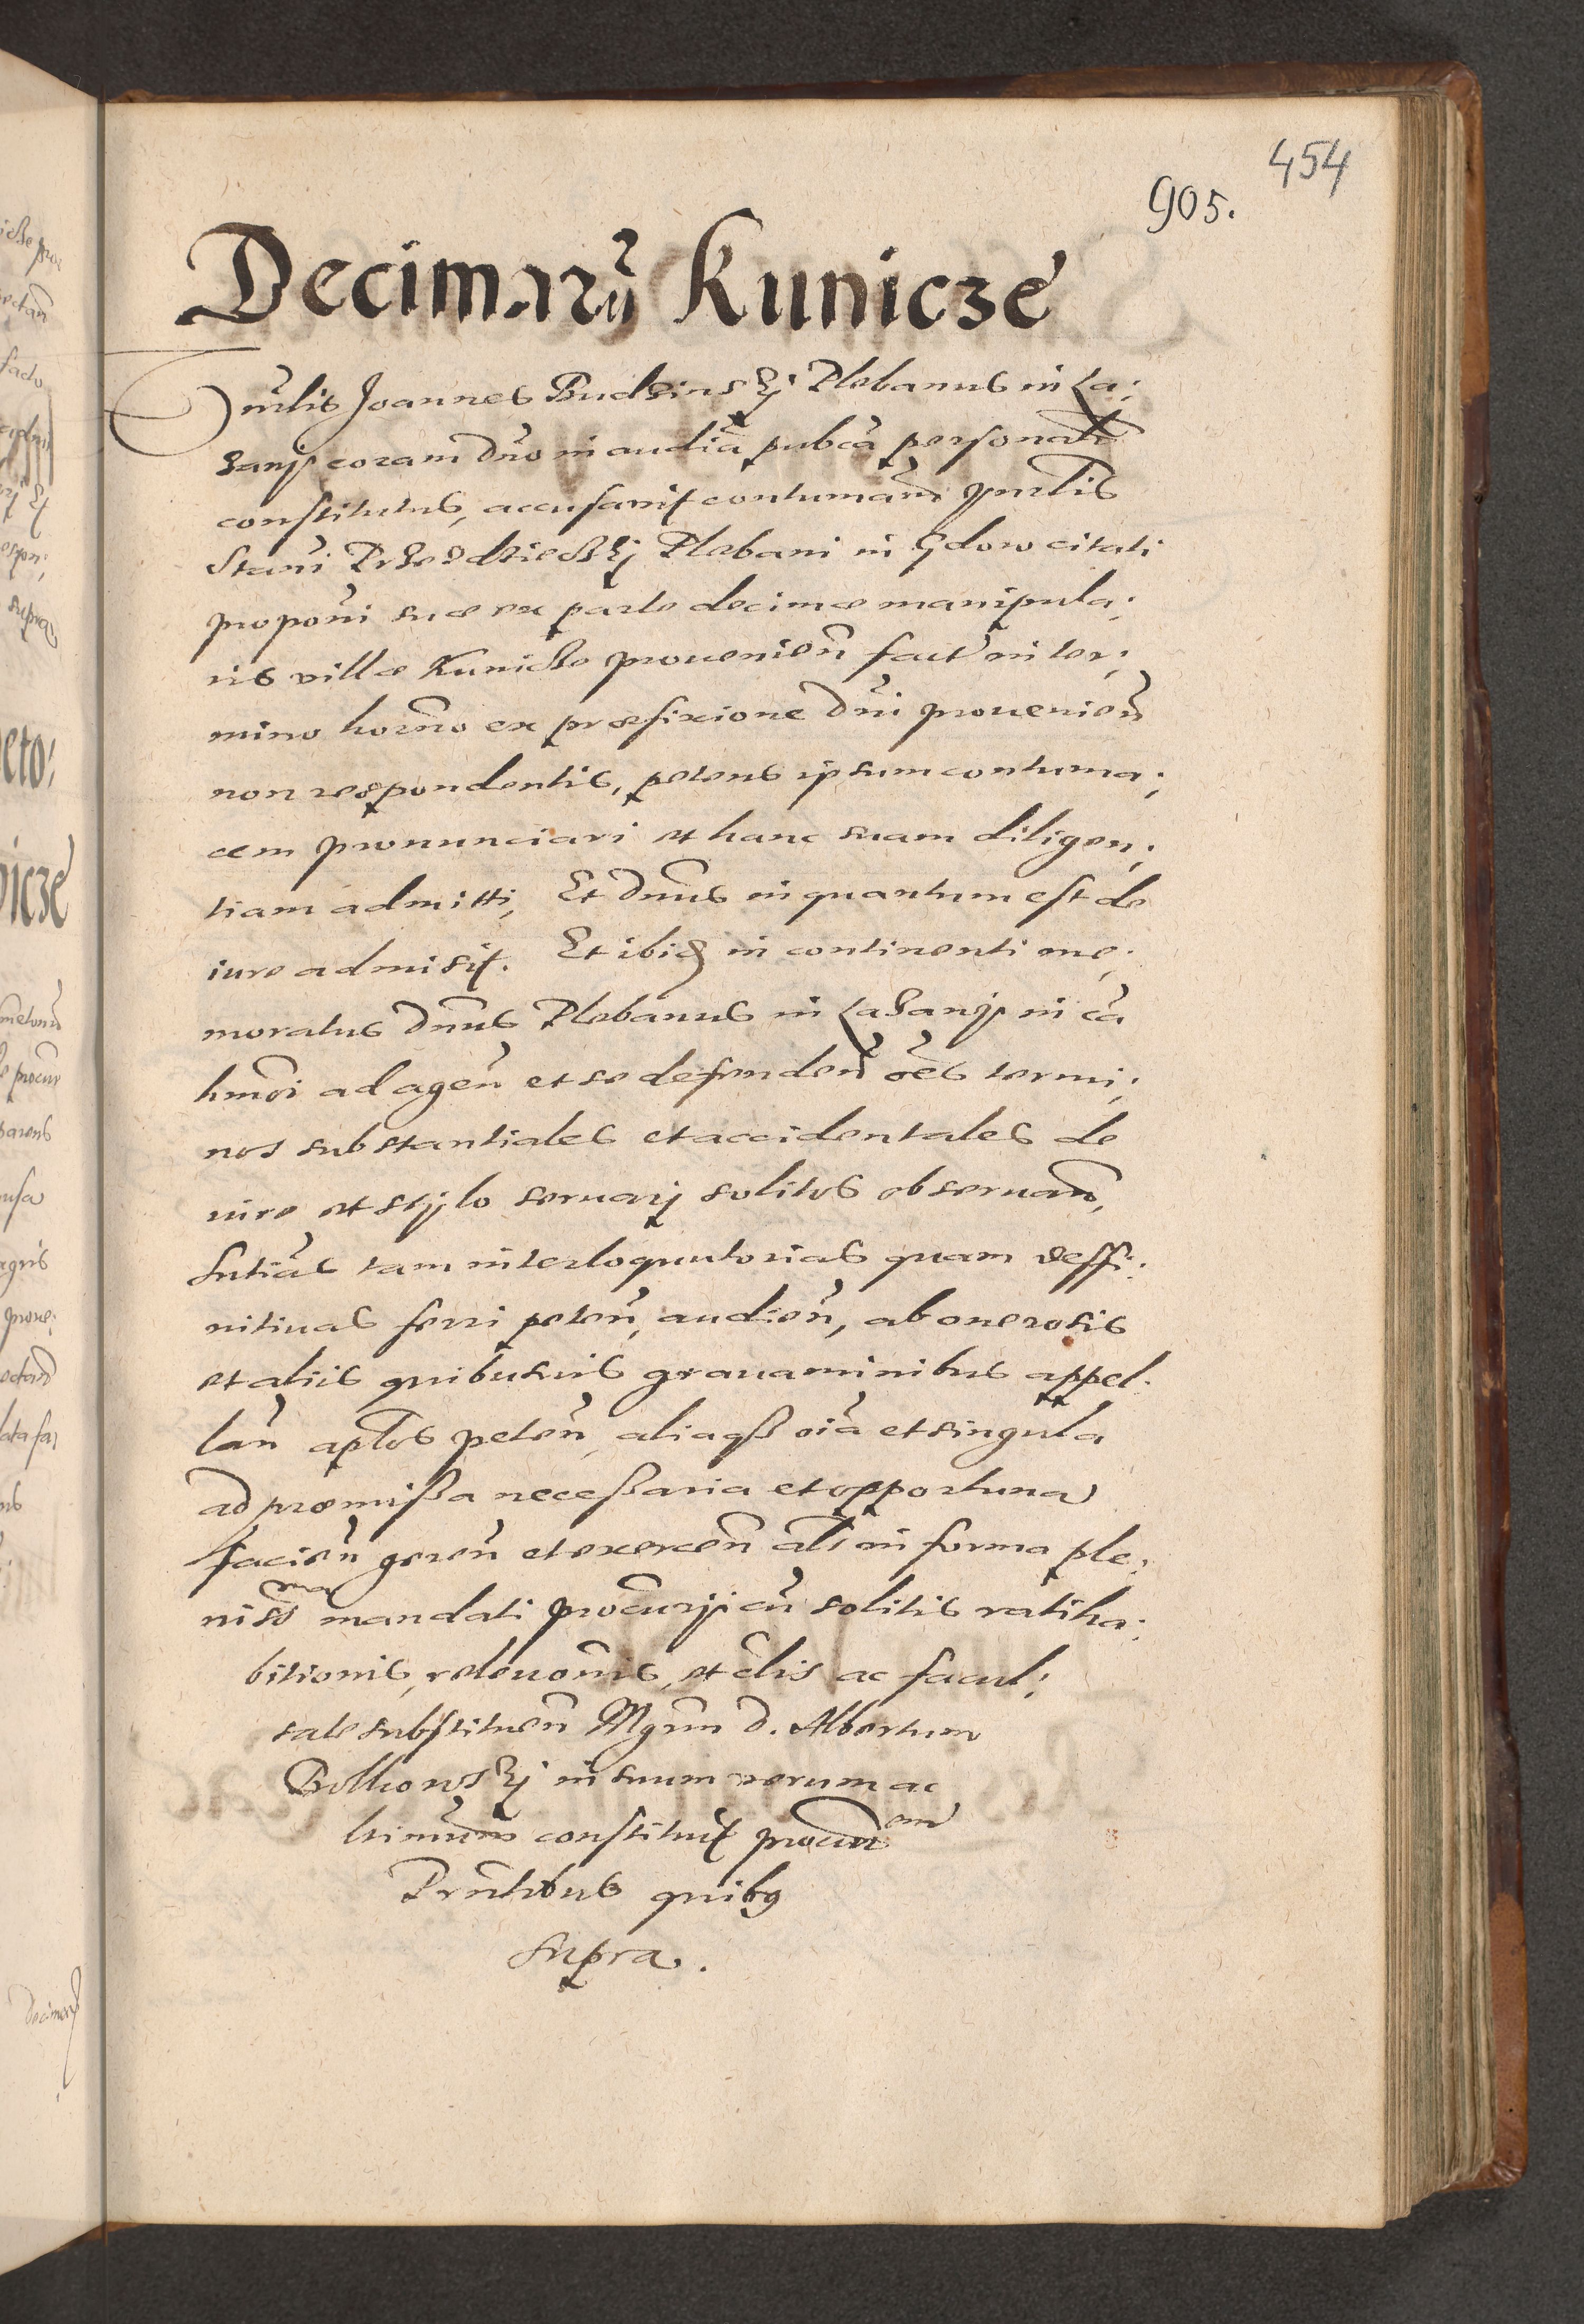 454
905.
Decimarũ Kunicze
Venerlis Joannes Budzinskij Plebanus in La:
zanij coram Dño in audiã pubcã personalr
constitutus, accusavit contumaciam Honorlis
Stanĩ Przedzieczkij Plebani in Gdow citati
proponi suæ ex parte decimæ manipula:
ris villæ Kunicze provenieñ fact in ter:
mino horno ex præfixione Dñi provenieñ
non respondentis, petens ipsum contuma:
cem pronunciari et hanc suam diligen:
tiam admitti, Et Dnus in quantum est de
iure admisit. Et ibid in continenti me:
moratus Dnus Plebanus in Lazanij in cã
hmõi ad ageñ et se defendeñ oẽs termi:
nos substantiales et accidentales de
iure et stijlo servarij solitos observañ,
Sntias tam interloquutorias quam deffi:
nitivas ferri peteñ, audieñ, ab onerosis
et aliis quibusvis gravaminibus appel:
lañ aplos peteñ, aliaqß oiã et singula
ad præmissa necessaria et opportuna
facieñ gereñ et exerceñ als in forma ple:
nissma mandati procurij cũ solitis ratiha:
bitionis, relevonis, et clis ac facul:
tate substitueñ Mgrum D. Albertum
Bolhowskij in suum verum ac
ltimum constituit procurem
Prñtibus quibg
supra.